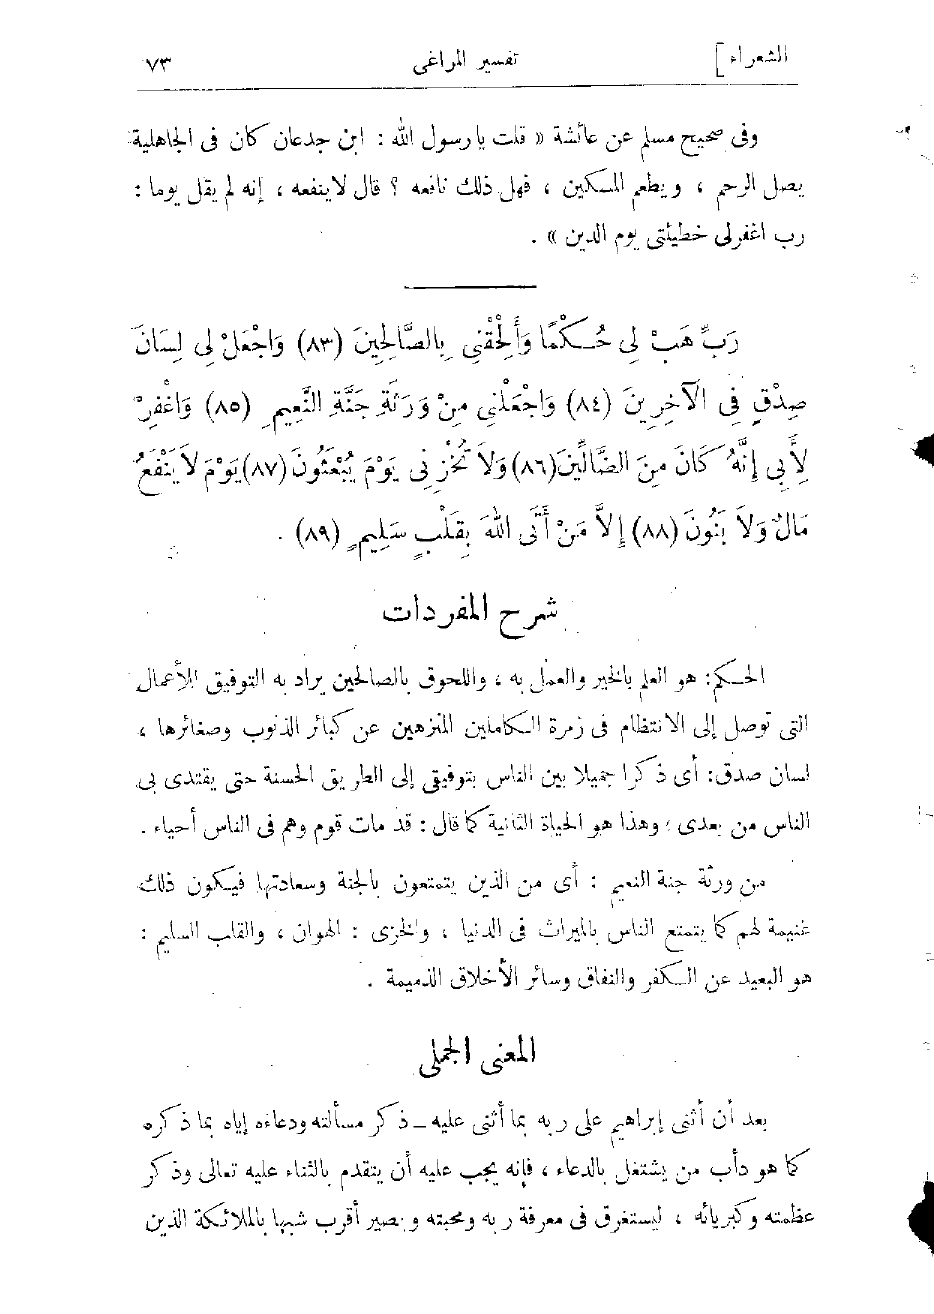 الشعراء] تفسير المراغى ٧٣
وفى صحيح مسلم عن عائشة « قلت يا رسول الله : ابن جدعان كان فى الجاهلية
يصل الرحم ، ويطعم المسكين ، فهل ذلك نافعه ؟ قال لا ينفعه ، إنه لم يقل يوما :
رب اغفر لى خطيئتى يوم الدين » .
رَبِّ هَبْ لِى حُكْمًا وَأَلْحِقْنِى بِالصَّالِحِينَ (٨٣) وَاجْعَلْ لِى لِسَانَ
صِدْقٍ فِى الْآخِرِينَ (٨٤) وَاجْعَلْنِى مِنْ وَرَثَةِ جَنَّةِ النَّعِيمِ (٨٥) وَاغْفِرْ
لِأَبِى إِنَّهُ كَانَ مِنَ الضَّالِّينَ (٨٦) وَلَا تُخْزِنِى يَوْمَ يُبْعَثُونَ (٨٧) يَوْمَ لَا يَنْفَعُ
مَالٌ وَلَا بَنُونَ (٨٨) إِلَّا مَنْ أَتَى اللهَ بِقَلْبٍ سَلِيمٍ (٨٩) .
شرح المفردات
الحكم : هو العلم بالخير والعمل به ، واللحوق بالصالحين يراد به التوفيق للأعمال
التى توصل إلى الانتظام فى زمرة الكاملين المنزهين عن كبائر الذنوب وصغائرها ،
لسان صدق : أى ذكرا جميلا بين الناس بتوفيقى إلى الطريق الحسنة حتى يقتدى بى
الناس من بعدى ؛ وهذا هو الحياة الثانية كما قال : قد مات قوم وهم فى الناس أحياء .
من ورثة جنة النعيم : أى من الذين يتمتعون بالجنة وسعادتها فيكون ذلك
غنيمة لهم كما يتمتع الناس بالميراث فى الدنيا ، والخزى : الهوان ، والقلب السليم :
هو البعيد عن الكفر والنفاق وسائر الأخلاق الذميمة .
المعنى الجملى
بعد أن أثنى إبراهيم على ربه بما أثنى عليه ـ ذكر مسألته ودعاءه إياه بما ذكره
كما هو دأب من يشتغل بالدعاء ، فإنه يجب عليه أن يتقدم بالثناء عليه تعالى وذكر
عظمته وكبريائه ، ليستغرق فى معرفة ربه ومحبته ويصير أقرب شبها بالملائكة الذين